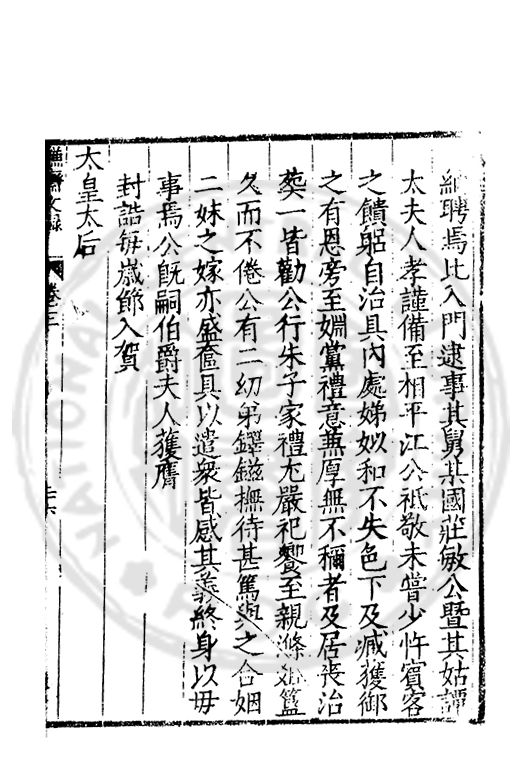 納聘焉比入門逮事其舅某國莊敏公暨其姑譚
太夫人孝謹備至相平江公祗敬未嘗少忤賓客
之饋躬自治具內處娣姒和不失色下及臧獲御
之有恩旁至婣黨禮意兼厚無不稱者及居喪治
葬一皆勸公行朱子家禮尤嚴祀饗至親滌邊簋
久而不倦公有二幼弟鐸鎡撫待甚篤與之合姻
二妹之嫁亦盛奩具以遣衆皆感其義終身以毋
事焉公旣嗣伯爵夫人獲膺
封誥每歲節入賀
太皇太后
謙齋文錄 卷三